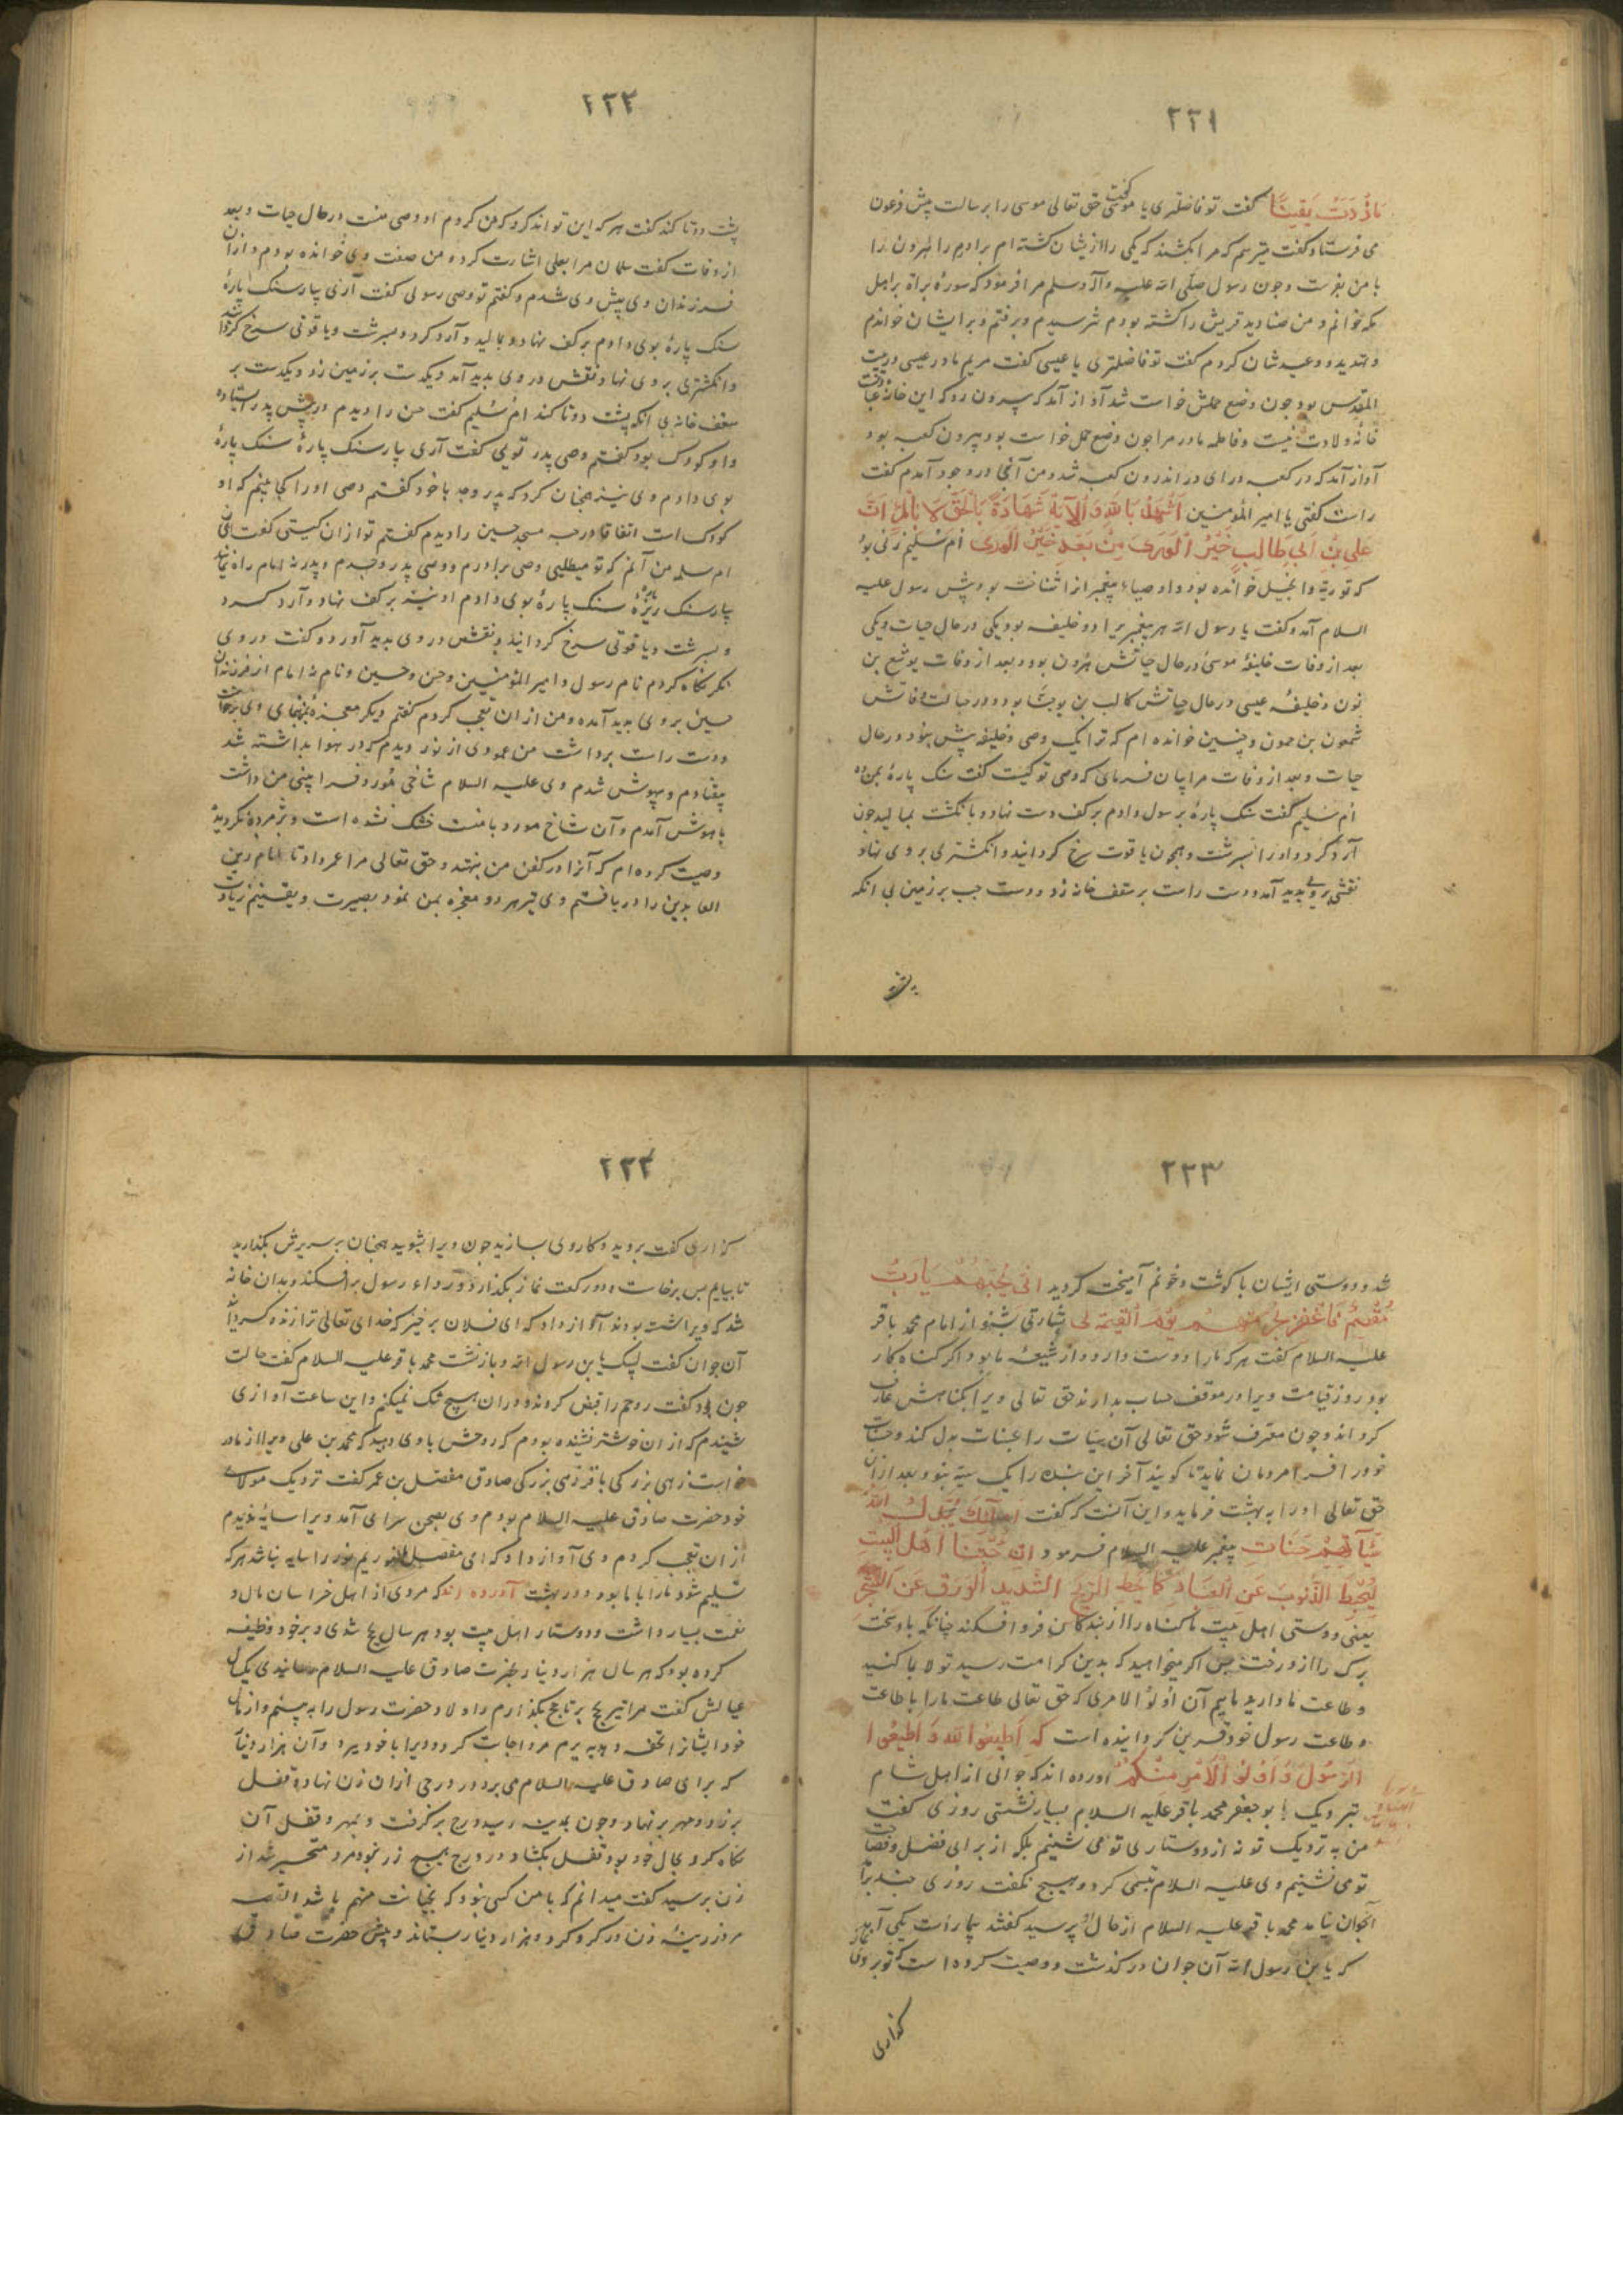 ۲۲۱
ماازددت یقینا گفت تو فاضلتری یا موسی گفت حق تعالی موسی را برسالت پیش فرعون
می فرستاد گفت میترسم که مرا بکشند که یکی را از ایشان کشته ام برادرم را هرون را
با من بفرست و چون رسول صلی الله علیه وآله وسلم مرا فرمود که سورهٔ براة بر اهل
مکه خوانم و من صنادید قریش را کشته بودم نترسیدم و برفتم و بر ایشان خواندم
و تهدید و وعیدشان کردم گفت تو فاضلتری یا عیسی گفت مریم مادر عیسی در بیت
المقدس بود چون وضع حملش خواست شد آواز آمد که بیرون رو که این خانهٔ عبادتست
خانهٔ ولادت نیست و فاطمه مادر مرا چون وضع حمل خواست بود بیرون کعبه بود
آواز آمد که در کعبه درای در اندرون کعبه شد و من آنجا در وجود آمدم گفت
راست گفتی یا امیر المؤمنین اشهد بالله والآیة شهادة بالحق لا بالمراءات
علی بن ابی طالب خیر الوری من بعد خیر الوری ام سلیم زنی بود
که توریة و انجیل خوانده بود و اوصیاء پیغمبر انرا شناخت بود پیش رسول علیه
السلام آمد و گفت یا رسول الله هر پیغمبر یرا دو خلیفه بود یکی در حال حیات و یکی
بعد از وفات خلیفهٔ موسی در حال حیاتش هرون بود و بعد از وفات یوشع بن
نون و خلیفهٔ عیسی در حال حیاتش کالب بن یوحنا بود و در حالت وفاتش
شمعون بن حمون و چنین خوانده ام که ترا یک وصی و خلیفه پیش نبود در حال
حیات و بعد از وفات مرا بیان فرمای که وصی تو کیست گفت سنک پارهٔ بمن ده
ام سلیم گفت سنک پارهٔ برسول دادم بر کف دست نهاد و بانگشت بمالید چون
آرد کرد و اورا بسرشت و همچون یاقوت سرخ گردانید و انگشتری بر وی نهاد
نقشی بر وی پدید آمد و دست راست بر سقف خانه زد و دست چپ بر زمین بی انکه
پشت
۲۲۲
پشت دوتا کند گفت هر که این تواند کرد که من کردم او وصی منست در حال حیات و بعد
از وفات گفت سلمان مرا بعلی اشارت کرد و من صفت وی خوانده بودم و از آن
فرزندان وی پیش وی شدم و گفتم تو وصی رسولی گفت آری بیار سنک پارهٔ
سنک پارهٔ بوی دادم بر کف نهاد و بمالید و آرد کرد و بسرشت و یاقوتی سرخ گردانید
و انگشتری بر وی نهاد نقش در وی پدید آمد و یکدست بر زمین زد و یکدست بر
سقف خانه بی انکه پشت دوتا کند ام سلیم گفت حسن را دیدم در پیش پدر استاده
و او کودک بود گفتم وصی پدر تویی گفت آری بیار سنک پارهٔ سنک پارهٔ
بوی دادم وی نیز همچنان کرد که پدر و جد با خود گفتم وصی اورا کجا بینم که او
کودک است اتفاقا در جنب مسجد حسین را دیدم گفتم تو از ان کیستی گفت ای
ام سلیم من آنم که تو میطلبی وصی برادرم و وصی پدر و جدم و پدر نه امام راه نماینده
بیار سنک ریزهٔ سنک پارهٔ بوی دادم او نیز بر کف نهاد و آرد کرد
و بسرشت و یاقوتی سرخ گردانید و نقش در وی پدید آورد و گفت در وی
نکر نگاه کردم نام رسول و امیر المؤمنین و حسن و حسین و نام نه امام از فرزندان
حسین بر وی پدید آمده و من از ان تعجب کردم گفتم دیگر معجزهٔ
دست راست برداشت من عمودی از نور دیدم که در هوا بداشته شد
بیفتادم و بیهوش شدم وی علیه السلام شاخی مورد فرا بینی من داشت
باهوش آمدم و آن شاخ مورد با منست خشک نشده است و پژمرده نکردیده
وصیت کرده ام که آنرا در کفن من نهند و حق تعالی مرا عمر داد تا امام زین
العابدین را دریافتم وی نیز هر دو معجزه بمن نمود بصیرت و یقینم زیادت
۲۲۳
شد و دوستی ایشان با گوشت و خونم آمیخت گردید انی بحبهم یا رب
مقیم فاغفر بحرمتهم یوم القیمة لی بشارتی بشنو از امام محمد باقر
علیه السلام گفت هر که ما را دوست دارد و از شیعهٔ ما بود اگر گناه کار
بود روز قیامت ویرا در موقف حساب بدارند حق تعالی ویرا بگناهش عارف
گرداند و چون معترف شود حق تعالی آن سیئات را بحسنات بدل کند و حسنات
خود را فرا مردمان نماید تا گویند آخر این بنده را یک سیئه نبود و بعد از ان
حق تعالی اورا به بهشت فرماید و این آنست که گفت اولئک یبدل الله
سیآتهم حسنات پیغمبر علیه السلام فرمود ان حبنا اهل البیت
لیحط الذنوب عن العباد کما یحط الریح الشدید الورق عن الشجر
یعنی دوستی اهل بیت ما گناه را از بندگان فرو افکند چنانکه باد سخت
برک را از درخت پس اگر میخواهید که بدین کرامت رسید تولا با کنید
و طاعت ما دارید مایم آن اولو الامری که حق تعالی طاعت ما را با طاعت
و طاعت رسول خود قرین گردانیده است که اطیعوا الله و اطیعوا
الرسول و اولو الامر منکم اورده اند که جوانی از اهل شام
بنزدیک ابو جعفر محمد باقر علیه السلام بسیار نشستی روزی گفت
من به نزدیک تو نه از دوستاری تو می نشینم بلکه از برای فضل و فصاحت
تو می نشینم وی علیه السلام تبسمی کرد و هیچ نگفت روزی چند برآمد
آنجوان نیامد محمد باقر علیه السلام از حال او پرسید گفتند بیمارست یکی آمد
که یا بن رسول الله آن جوان درگذشت و وصیت کرده است که تو بر وی نماز
گذاری
۲۲۴
گذاری گفت بروید و کار وی بسازید چون ویرا بشوید همچنان بر سریرش بگذارید
تا بیایم پس برخاست و دو رکعت نماز بگذارد و رداء رسول برافکند و بدان خانه
شد که ویرا شسته بودند آواز داد که ای فلان برخیز که خدای تعالی ترا زنده گردانید
آن جوان گفت لبیک یا بن رسول الله و بازنشست محمد باقر علیه السلام گفت حالت
چون بود گفت روحم را قبض کردند و در ان هیچ شک نمیکنم و این ساعت آوازی
شنیدم که از ان خوشتر نشنیده بودم که روحش با وی دهید که محمد بن علی ویرا از ما در
خواست زهی بزرگی باقر زهی بزرگی صادق مفضل بن عمر گفت نزدیک مولای
خود حضرت صادق علیه السلام بودم وی بصحن سرای آمد ویرا سایه ندیدم
از ان تعجب کردم وی آواز داد که ای مفضل ما نوریم نور را سایه نباشد هر که
تسلیم شود ما را با ما بود در بهشت آورده اند که مردی از اهل خراسان مال و
نعمت بسیار داشت و دوستار اهل بیت بود هر سال بحج شدی و بر خود وظیفه
کرده بود که هر سال هزار دینار بحضرت صادق علیه السلام رسانیدی یک سال
عیالش گفت مرا نیز بحج بر تا حج بگذارم و اولاد حضرت رسول را ببینم و از مال
خود ایشانرا تحف و هدیه برم مرد اجابت کرد و ویرا با خود ببرد و آن هزار دینار
که برای صادق علیه السلام می برد در درجی از ان زن نهاد و قفل
بر زد و مهر بر نهاد و چون بمدینه رسید درج برگرفت و مهر و قفل آن
نگاه کرد بحال خود بود قفل بگشاد در درج هیچ زر نبود مرد متحیر شد از
زن پرسید گفت میدانم که با من کسی نبود که بخیانت متهم باشد القصه
مرد زرینهٔ زن در گرو کرد و هزار دینار بستاند و پیش حضرت صادق